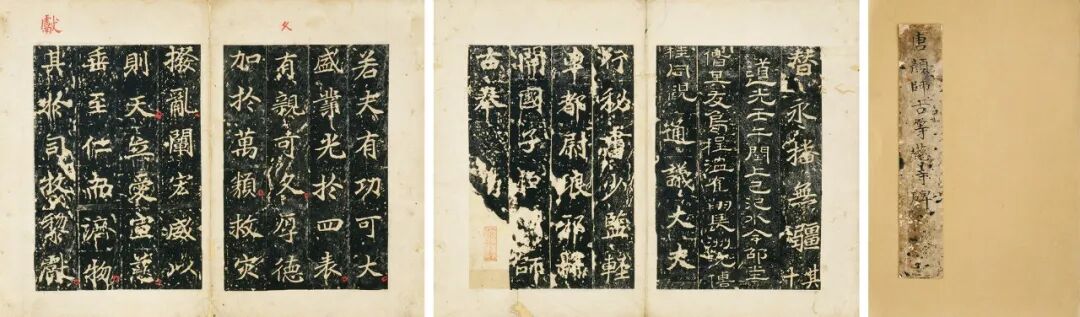 獻
久
若夫有功可大
盛業光於四表
有親可久厚德
加於萬類救灾
撥亂闡宏威以
則天立愛宣慈
垂至仁而濟物
其於司牧黎獻
替永播無疆 其十
同觀
通議大夫
行秘書少監輕
車都尉琅邪縣
開國子臣顏師
古奉
唐顏師古等慈寺碑